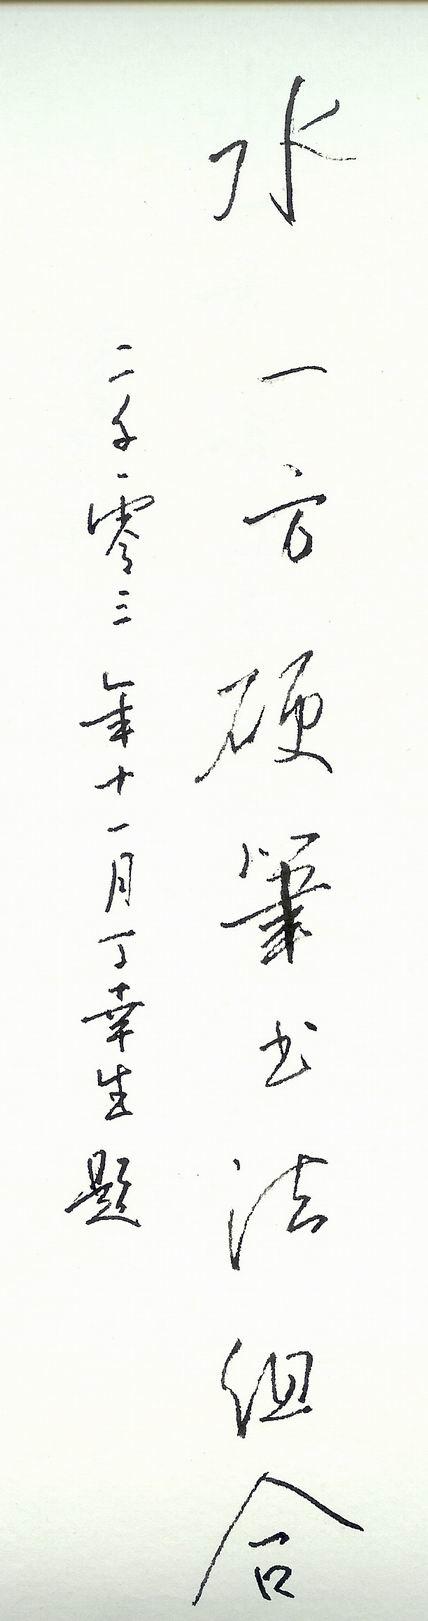 水一方硬筆书法组合
二千零三年十一月丁幸生題